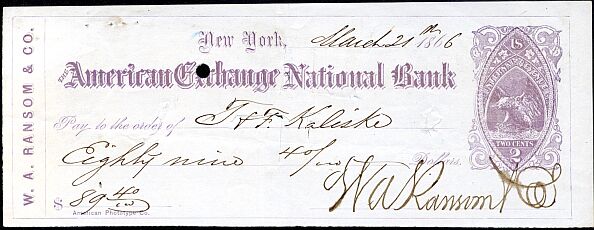 W. A. RANSOM & CO.
New York, March 21th 1866
THE American Exchange National Bank
Pay to the order of T & F. Kaliske
Eighty nine 40/100 Dollars.
$ 89 40/100
W A Ransom & Co
American Phototype Co.
U.S.
TWO CENTS
2